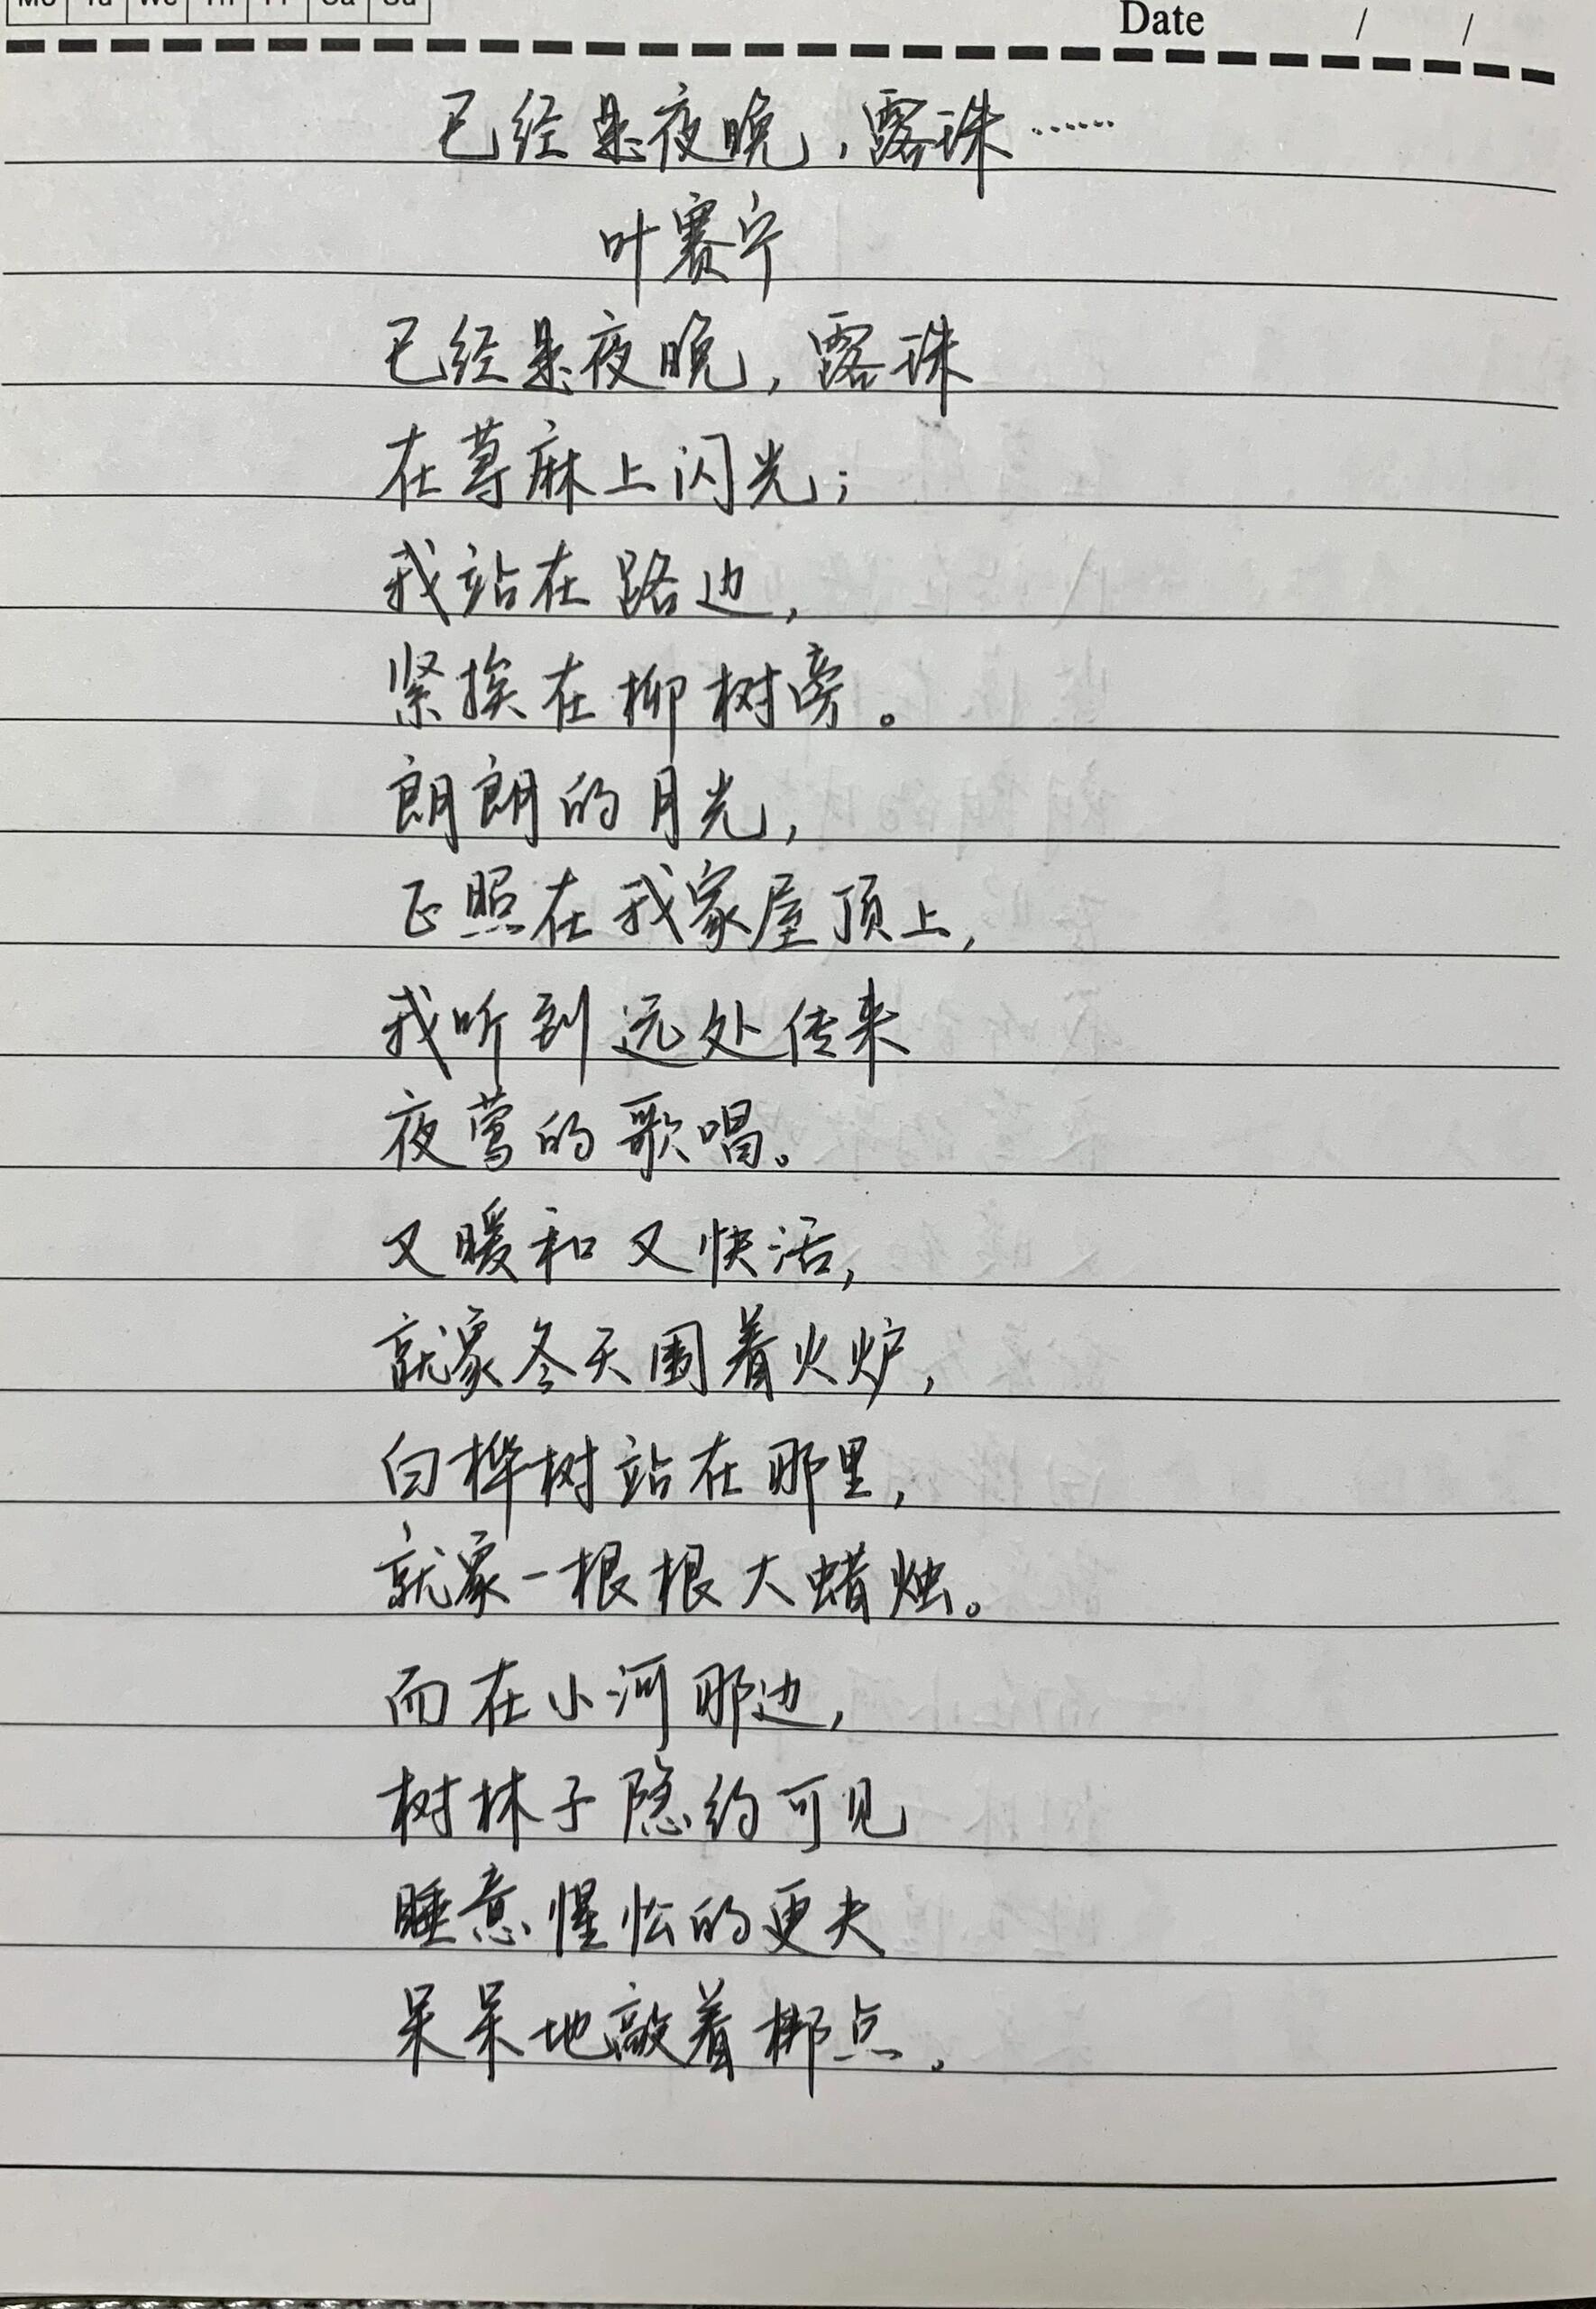 Mo Tu We Th Fr Sa Su
Date / /
已经是夜晚，露珠……
叶赛宁
已经是夜晚，露珠
在荨麻上闪光；
我站在路边，
紧挨在柳树旁。
朗朗的月光，
正照在我家屋顶上，
我听到远处传来
夜莺的歌唱。
又暖和又快活，
就象冬天围着火炉，
白桦树站在那里，
就象一根根大蜡烛。
而在小河那边，
树林子隐约可见
睡意惺忪的更夫
呆呆地敲着梆点。